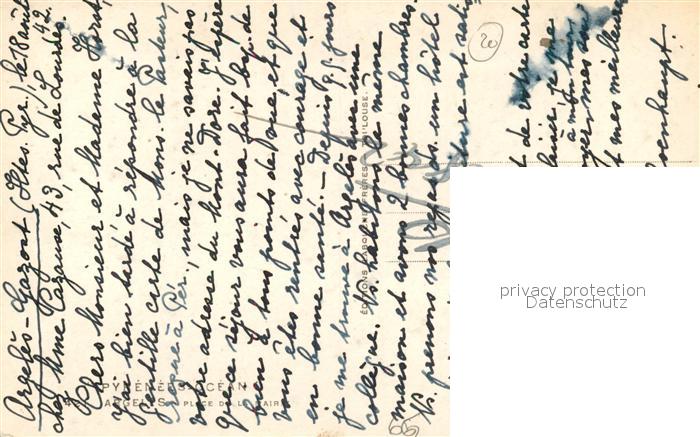 Argelès-Gazost (Htes. Pyr.), le 18 août 42.
chez Mme Cazaux, 43, rue de Lourdes
Chers Monsieur et Madame Hirst,
J'ai bien tardé à répondre à la
gentille carte de Mons. le Pasteur,
reçue à Pér., mais je ne savais pas
votre adresse du Mont-Dore. J'espère
que ce séjour vous aura fait bcp. de
bien à tous points de vue et que
vous êtes rentrés avec courage et
en bonne santé. – Depuis q.q. jours
je me trouve à Argelès avec une
collègue. Ns. habitons la même
maison et avons 2 bonnes chambres.
Ns. prenons nos repas ds. un hôtel
est
de votre carte
je me
à mon
mes meilleurs
20
66
PYRÉNÉES-OCÉAN
ARGELÈS - PLACE DE LA MAIRIE
TOULOUSE
privacy protection
Datenschutz